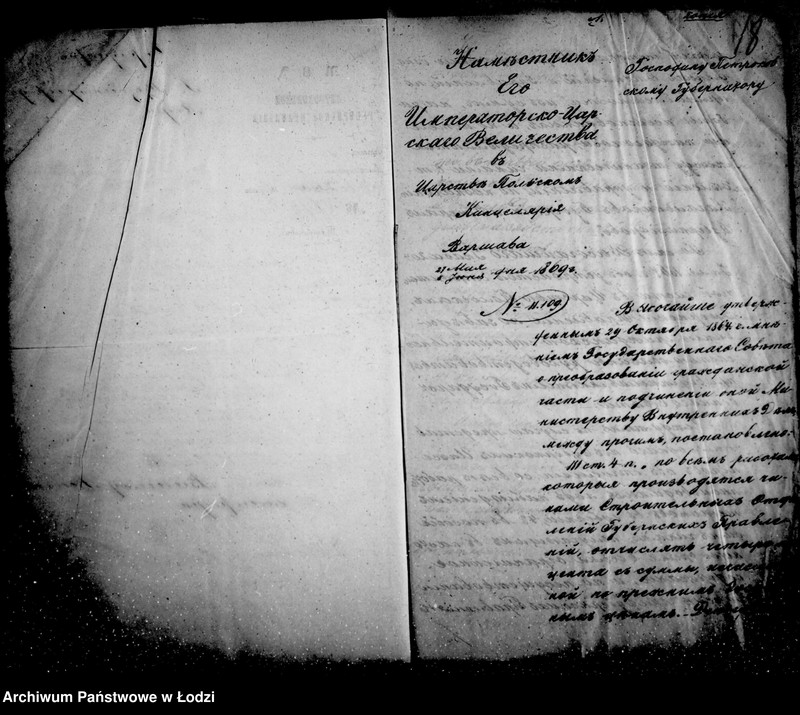 18
Намѣстникъ
Его
Императорско-Цар-
скаго Величества
въ
Царствѣ Польскомъ
Канцелярія
Варшава
27 Мая
8 Іюня дня 1869 г.
№ 4109
Господину Петроков-
скому Губернатору
Высочайше утверж-
деннымъ 29 Октября 1867 г. мнѣ-
ніемъ Государственнаго Совѣта
о преобразованіи гражданской
части и подчиненіи оной Ми-
нистерству Внутреннихъ Дѣлъ,
между прочимъ, постановлено:
III ст. 4 п., по всѣмъ работамъ
которыя производятся чи-
нами Строительныхъ Отдѣ-
леній Губернскихъ Правле-
ній, отчислять четыре
цента съ суммы,
ной по прежнимъ
нымъ цѣнамъ.
Archiwum Państwowe w Łodzi